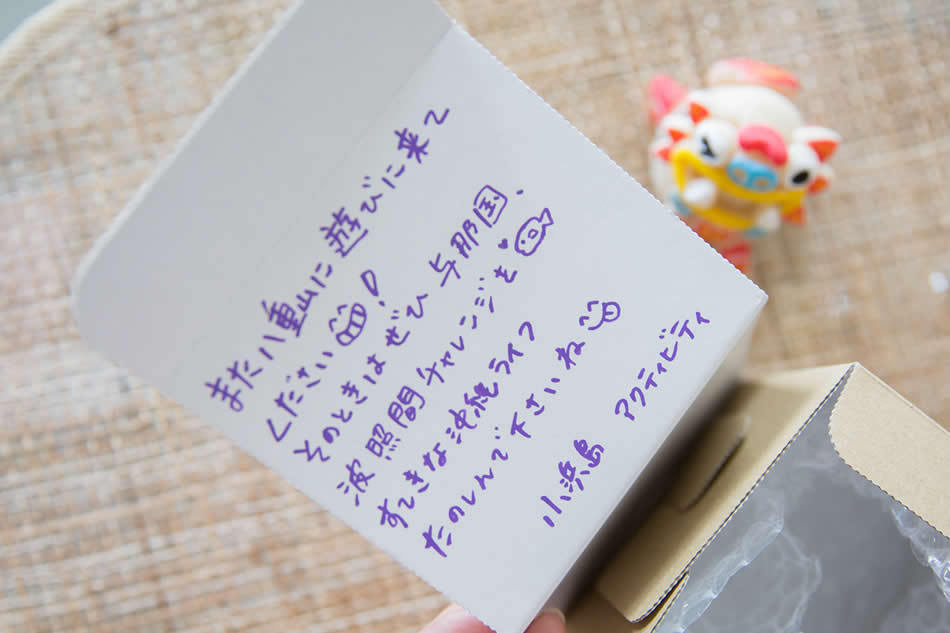 また八重山に遊びに来て
ください!
そのときはぜひ与那国、
波照間チャレンジを
すてきな沖縄ライフ
たのしんで下さいね
小浜島 アクティビティ